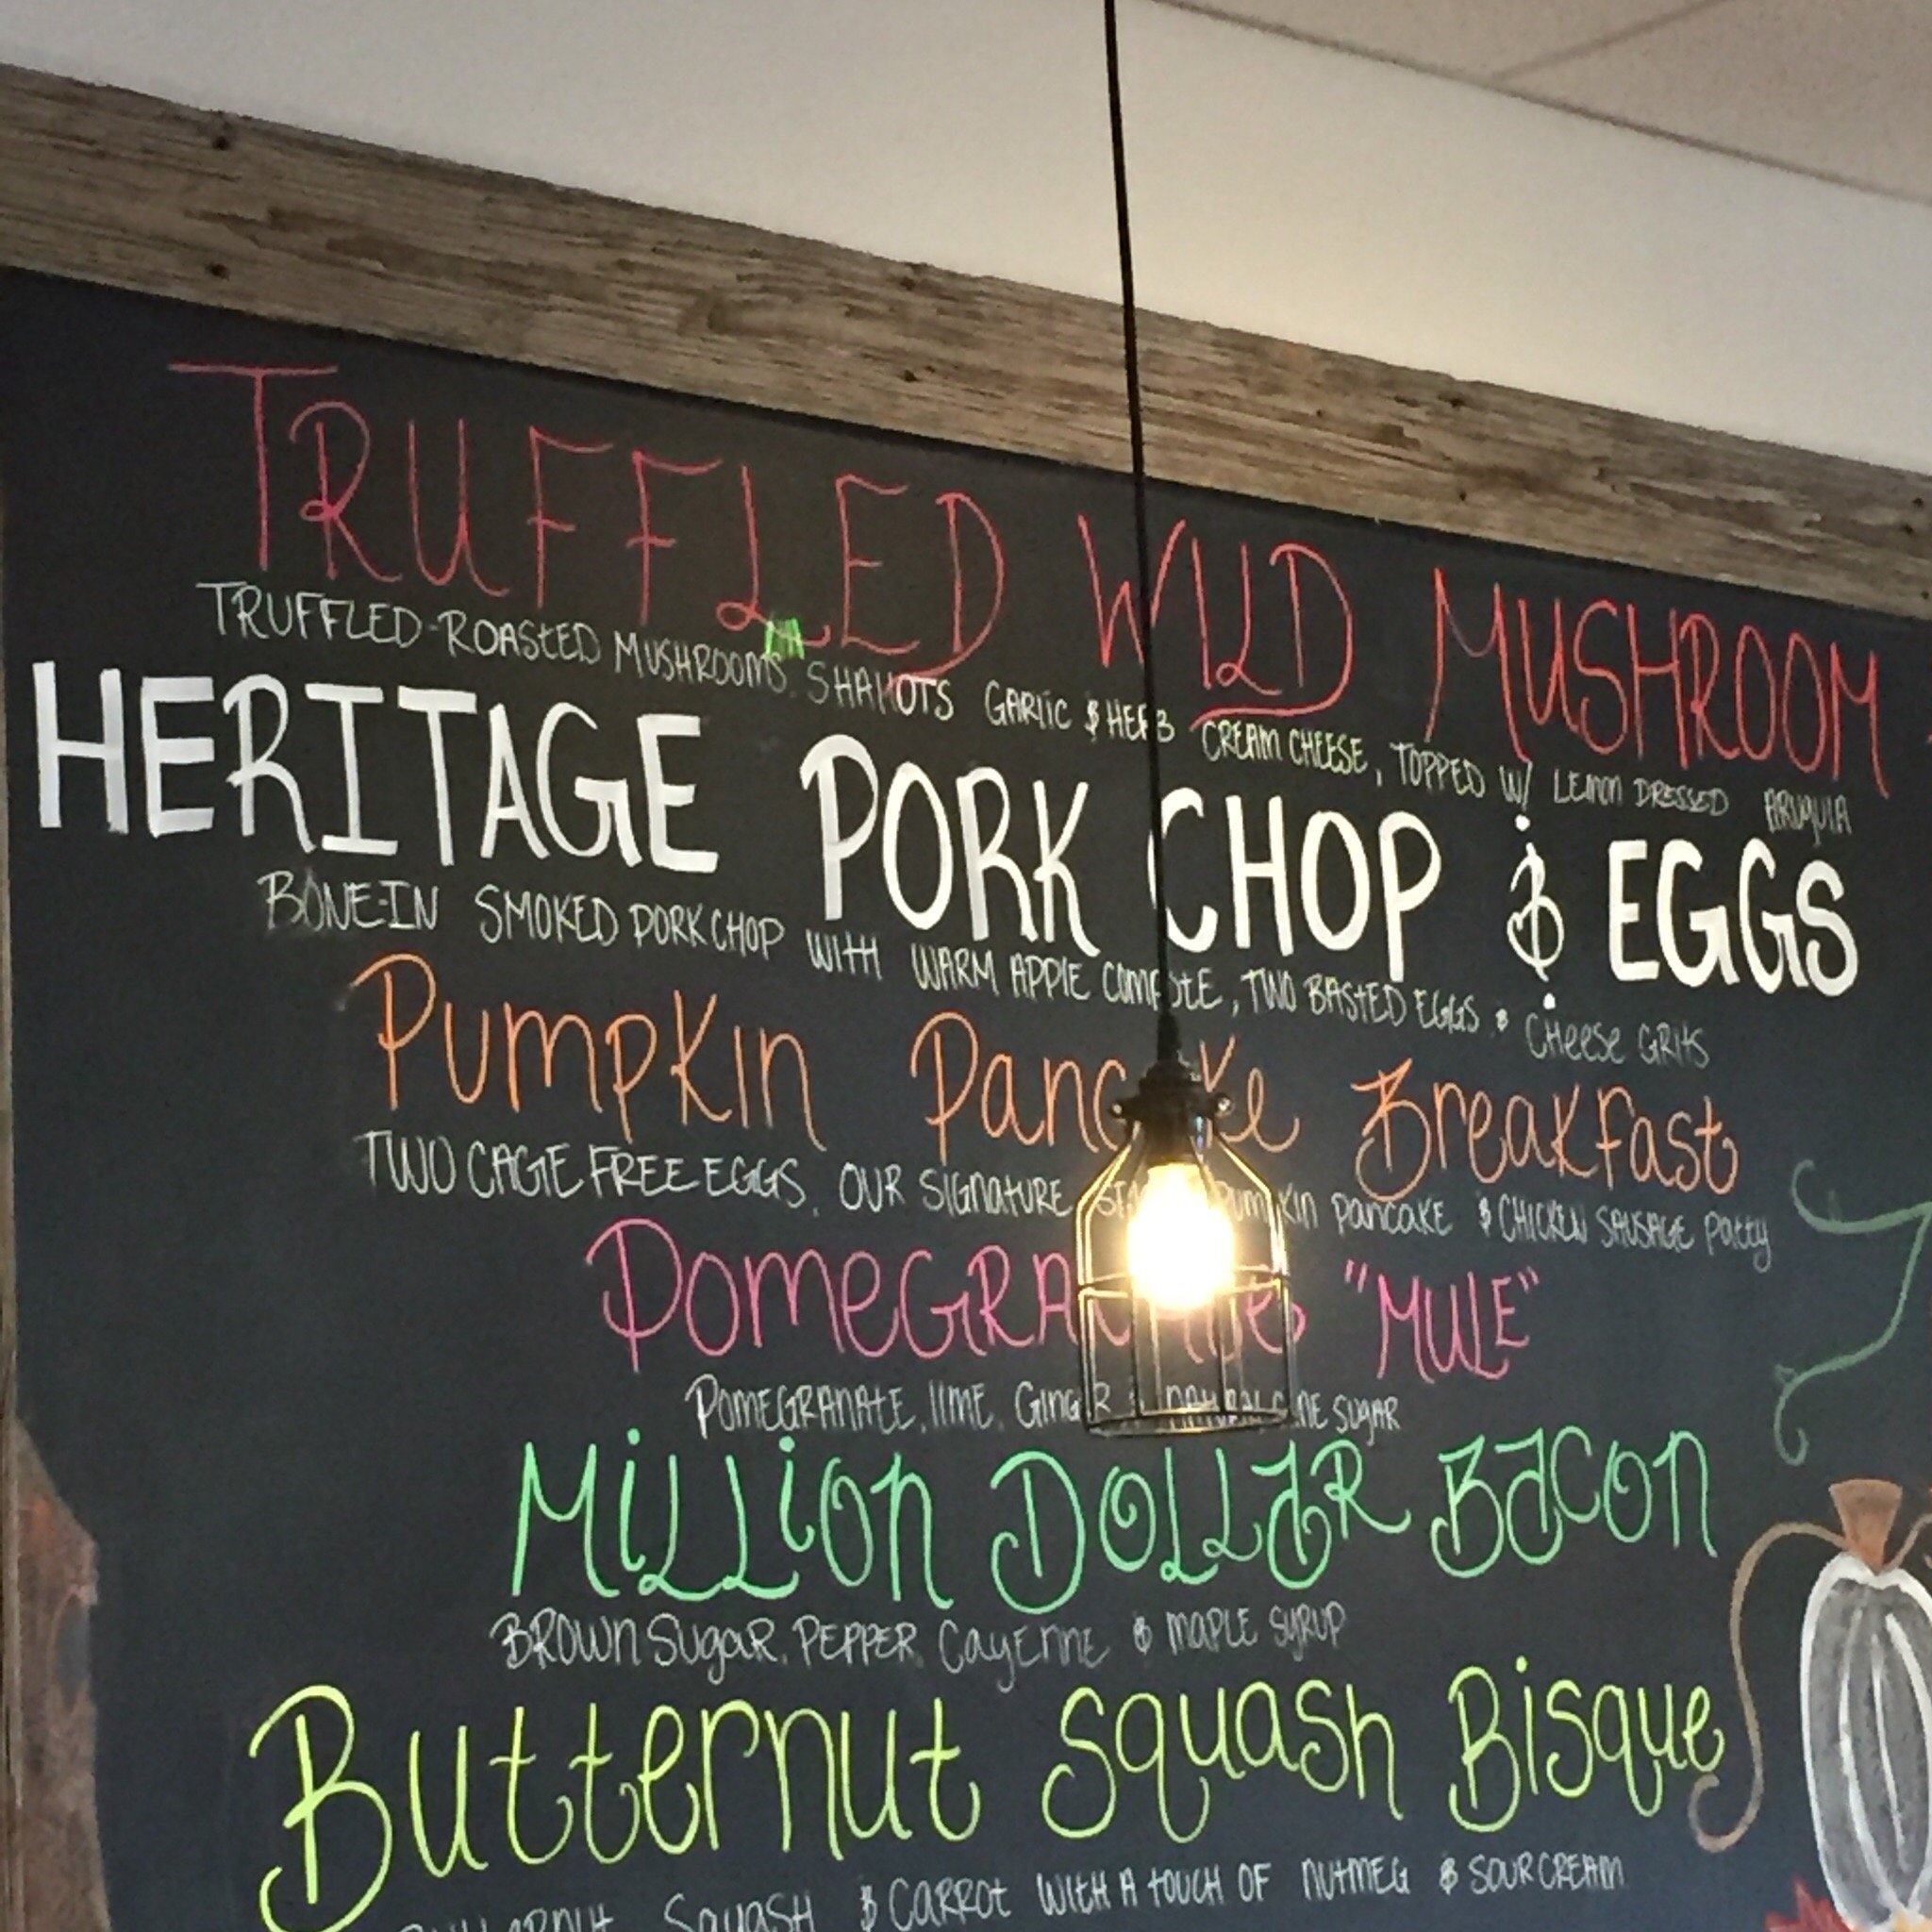 TRUFFLED WILD MUSHROOM
TRUFFLED-ROASTED MUSHROOMS, SHALLOTS GARLIC & HERB CREAM CHEESE, TOPPED W/ LEMON DRESSED ARUGULA
HERITAGE PORK CHOP & EGGS
BONE-IN SMOKED PORK CHOP WITH WARM APPLE COMPOTE, TWO BASTED EGGS & CHEESE GRITS
PUMPKIN Pancake Breakfast
TWO CAGE FREE EGGS, OUR SIGNATURE PUMPKIN PANCAKE & CHICKEN SAUSAGE Patty
POMEGRANATE "MULE"
POMEGRANATE, LIME, GINGER & NATURAL CANE SUGAR
MiLLiOn DOLLAR BACON
BROWN SUGAR, PEPPER, CAYENNE & MAPLE SYRUP
Butternut Squash Bisque
BUTTERNUT SQUASH & CARROT WITH A TOUCH OF NUTMEG & SOUR CREAM